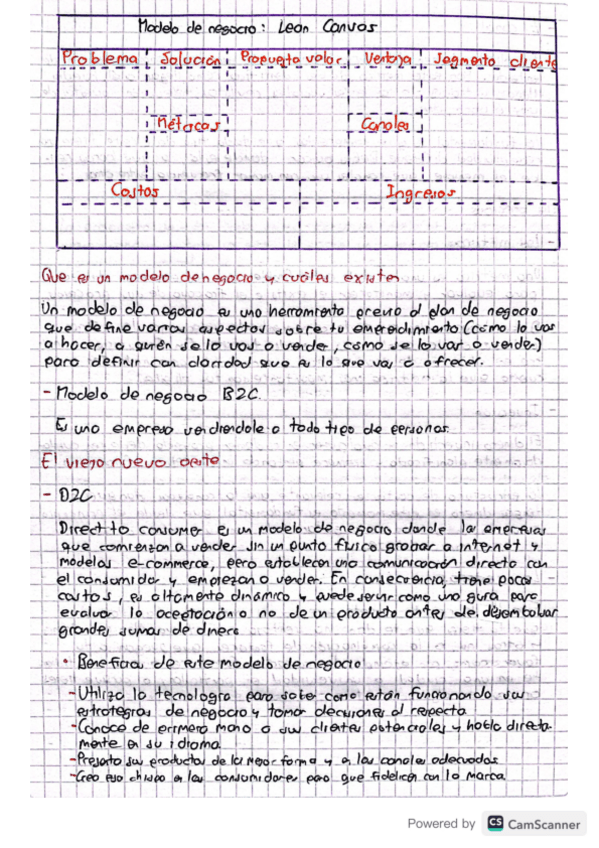 Modelo de negocio: Lean Canvas
Problema Solución Propuesta valor Ventaja Segmento cliente
Métricas Canales
Costos Ingresos
Que es un modelo de negocio y cuáles existen
Un modelo de negocio es una herramienta previa al plan de negocio
que define varios aspectos sobre tu emprendimiento (cómo lo vas
a hacer, a quién se lo vas a vender, cómo se lo vas a vender)
para definir con claridad que es lo que vas a ofrecer.
- Modelo de negocio B2C.
Es una empresa vendiendole a todo tipo de personas
El viejo nuevo oeste
- D2C
Direct to consumer es un modelo de negocio donde las empresas
que comienzan a vender sin un punto físico graban a internet y
modelos e-commerce, pero establecen una comunicación directa con
el consumidor y empiezan a vender. En consecuencia, tiene pocos
costos, es altamente dinámico y puede servir como una guía para
evaluar la aceptación o no de un producto antes de desembolsar
grandes sumas de dinero
• Beneficios de este modelo de negocio
- Utiliza la tecnología para saber como están funcionando sus
estrategias de negocio y tomar decisiones al respecto
- Conoce de primera mano a sus clientes potenciales y hable directa-
mente en su idioma
- Presenta sus productos de la mejor forma y en los canales adecuados
- Crea esa chispa en los consumidores para que fidelicen con la marca
Powered by CS CamScanner